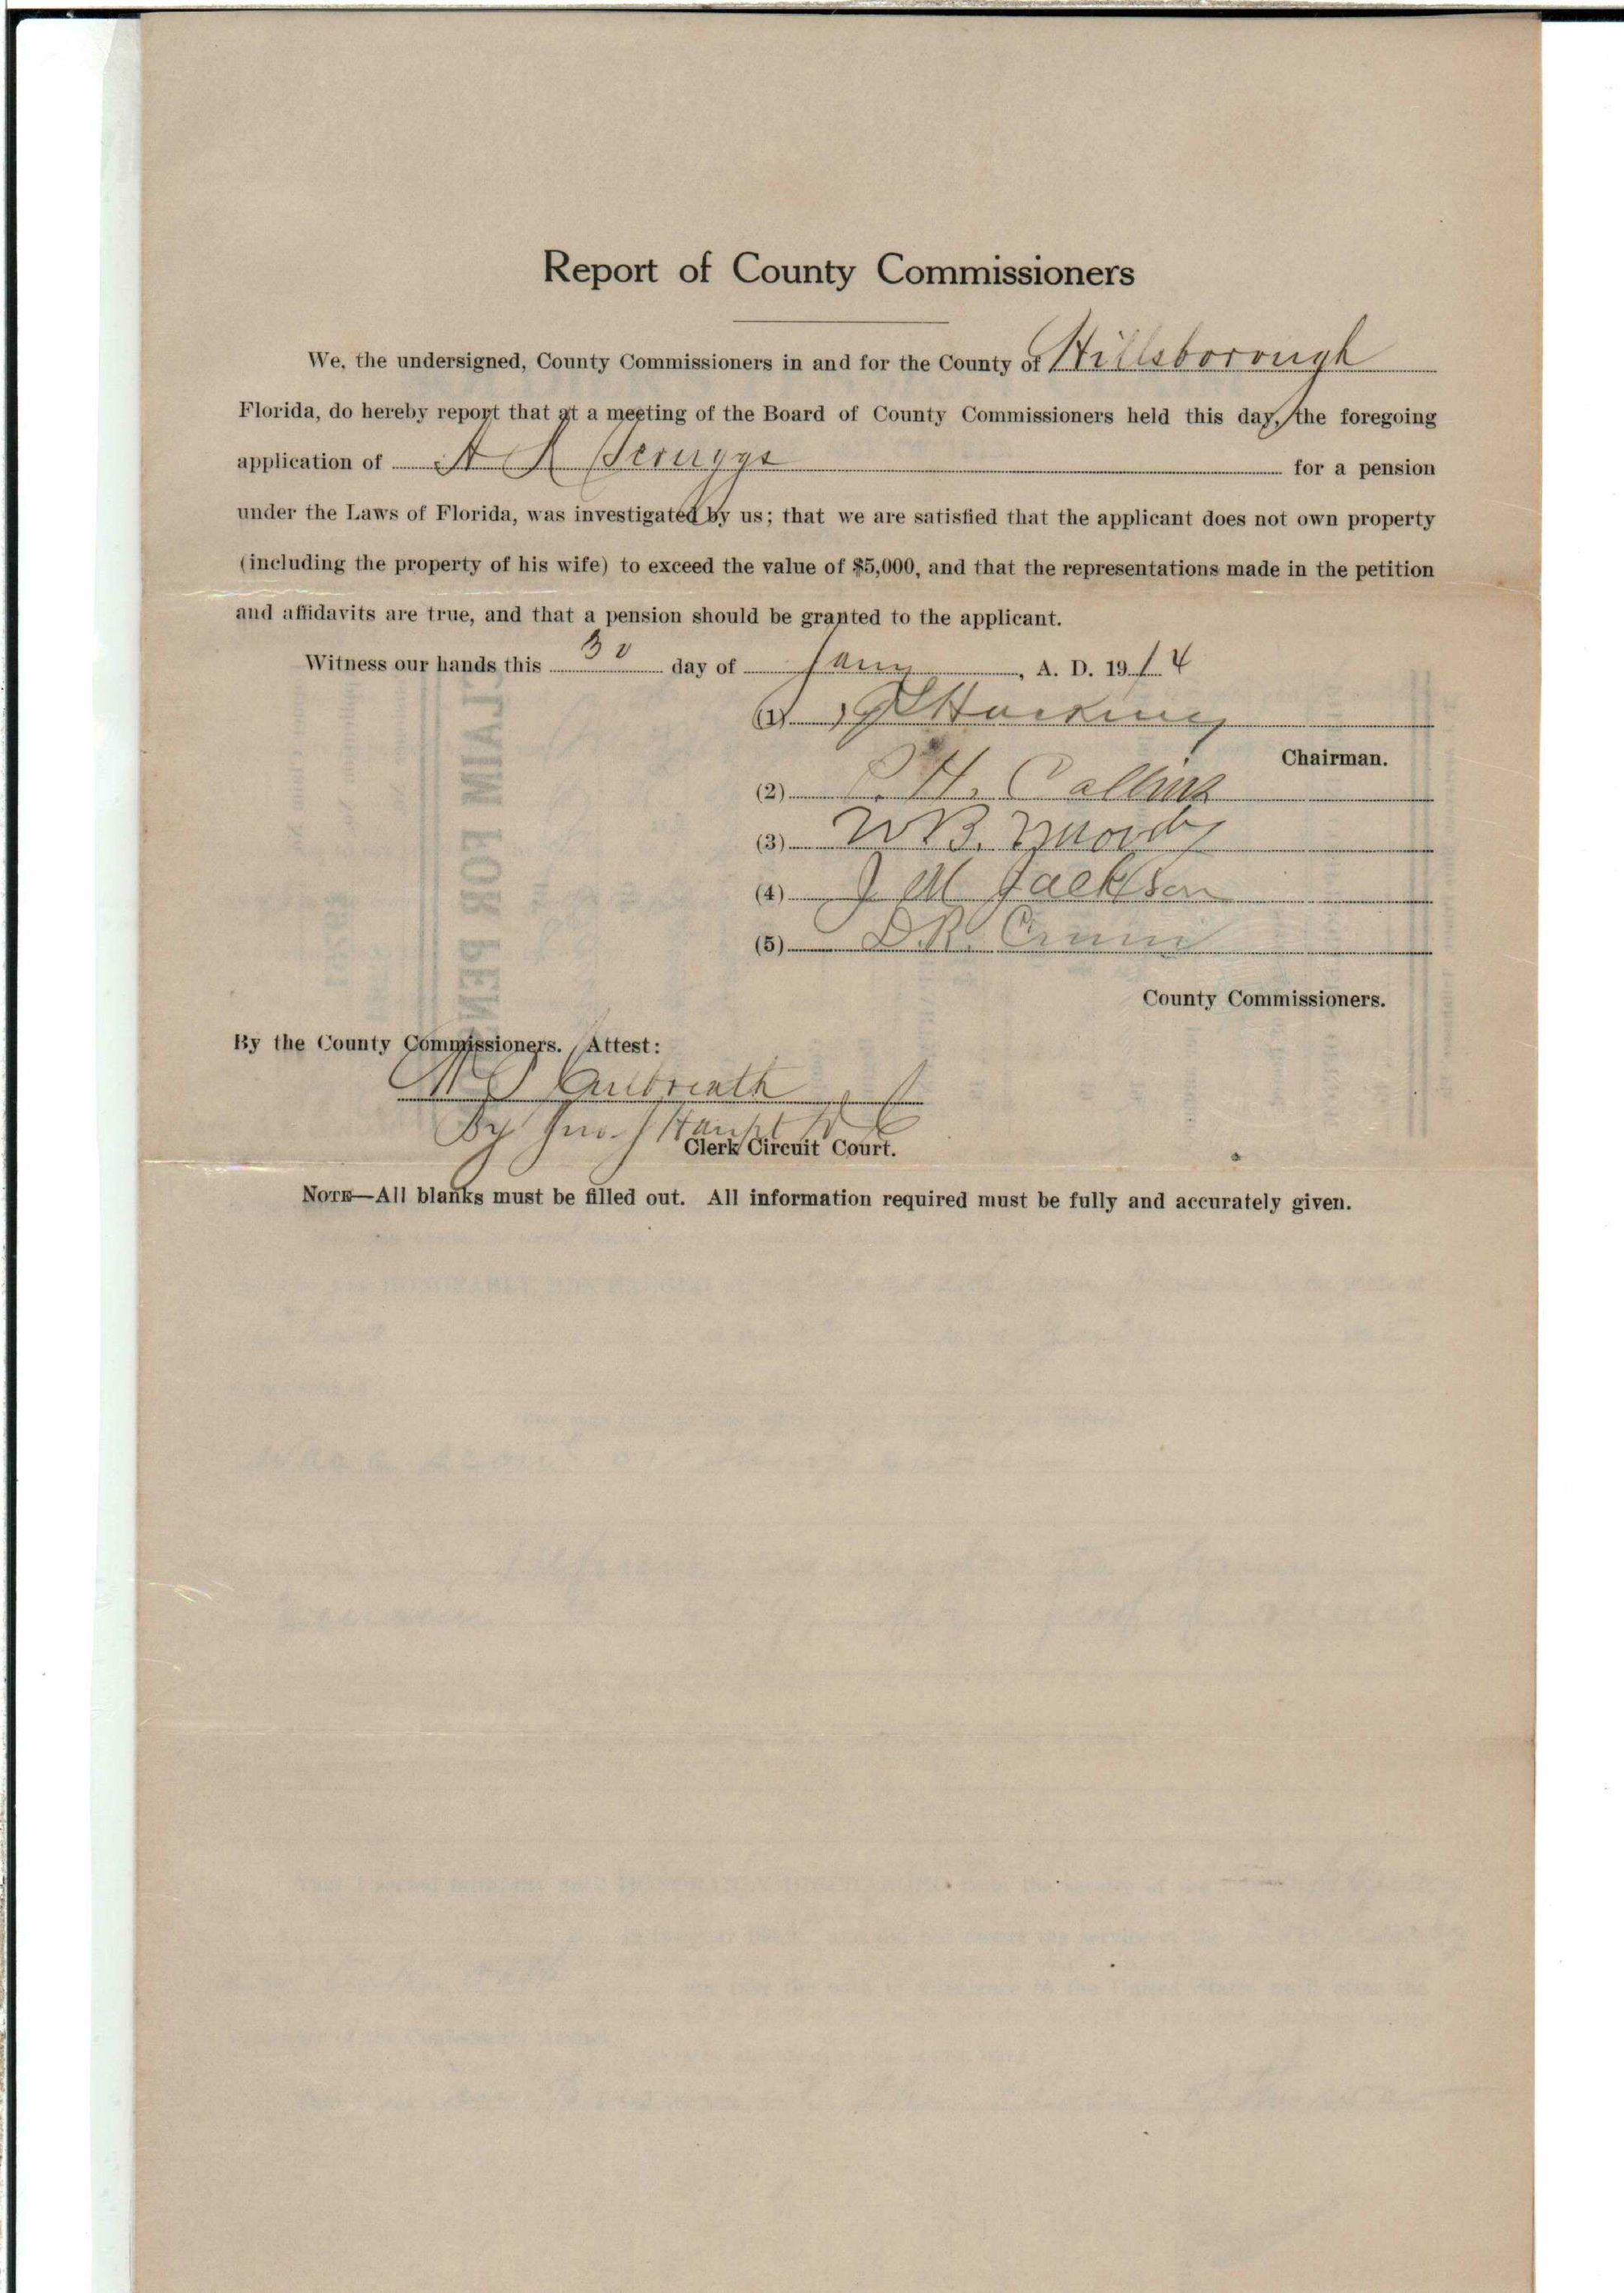 Report of County Commissioners
We, the undersigned, County Commissioners in and for the County of Hillsborough
Florida, do hereby report that at a meeting of the Board of County Commissioners held this day, the foregoing
application of A Scruggs for a pension
under the Laws of Florida, was investigated by us; that we are satisfied that the applicant does not own property
(including the property of his wife) to exceed the value of $5,000, and that the representations made in the petition
and affidavits are true, and that a pension should be granted to the applicant.
Witness our hands this 30 day of Jany, A. D. 1914
(1)
Chairman.
(2) H.
(3) W B. Moody
(4) J M Jackson
(5) D.R.
County Commissioners.
By the County Commissioners. Attest:
Culbreath
By Jno. Haupt D C
Clerk Circuit Court.
NOTE—All blanks must be filled out. All information required must be fully and accurately given.